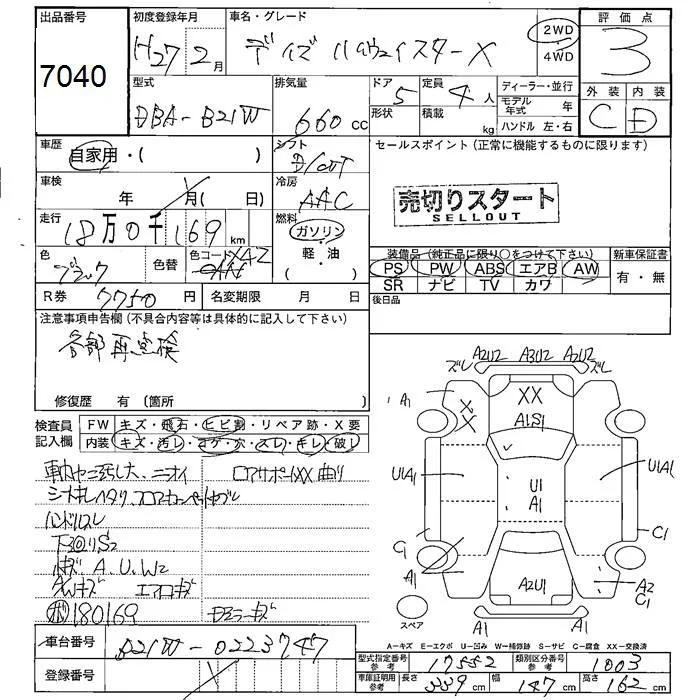 出品番号
7040
初度登録年月
H27年2月
車名・グレード
デイズ ハイウェイスターX
2WD
4WD
評価点
3
型式
DBA-B21W
排気量
660cc
ドア
5
形状
定員
4人
積載
kg
ディーラー・並行
モデル年式 年
ハンドル 左・右
外装
C
内装
D
車歴
自家用・( )
シフト
車検
年 月( 日)
冷房
AAC
走行
18万0千169km
燃料
ガソリン
軽・油
色
ブラック
色替
色コード
XAZ
R券
7750円
名変期限 月 日
セールスポイント(正常に機能するものに限ります)
売切りスタート
SELLOUT
装備品(純正品に限り○をつけて下さい)
PS PW ABS エアB AW
SR ナビ TV カワ
新車保証書
有・無
後日品
注意事項申告欄(不具合内容等は具体的に記入して下さい)
各部再点検
修復歴 有(箇所 )
検査員記入欄
FW キズ・飛石・ヒビ割・リペア跡・X要
内装 キズ・汚レ・コゲ・穴・スレ・キレ・破レ
車内ヤニ汚レ大、ニオイ
シートキレヘタリ、フロアカーペットヤブレ
ハンドルスレ
下回りS2
小キズ A.U.W2
AWキズ エアロキズ
180169
ロアサポートXX 曲り
ドアミラーキズ
ズレ A2U2 A3U2 A2U2 ズレ
A1
XX
XX
A1S1
U1A1
U1
A1
U1A1
C1
C1
A1
A2U1
A2
C1
スペア
A1
A1
A-キズ E-エクボ U-凹み W-補修跡 S-サビ C-腐食 XX-交換済
車台番号
B21W-0223747
登録番号
型式指定番号
参考
17552
類別区分番号
参考
1003
車庫証明用
参考
長さ 339cm
幅 147cm
高さ 162cm